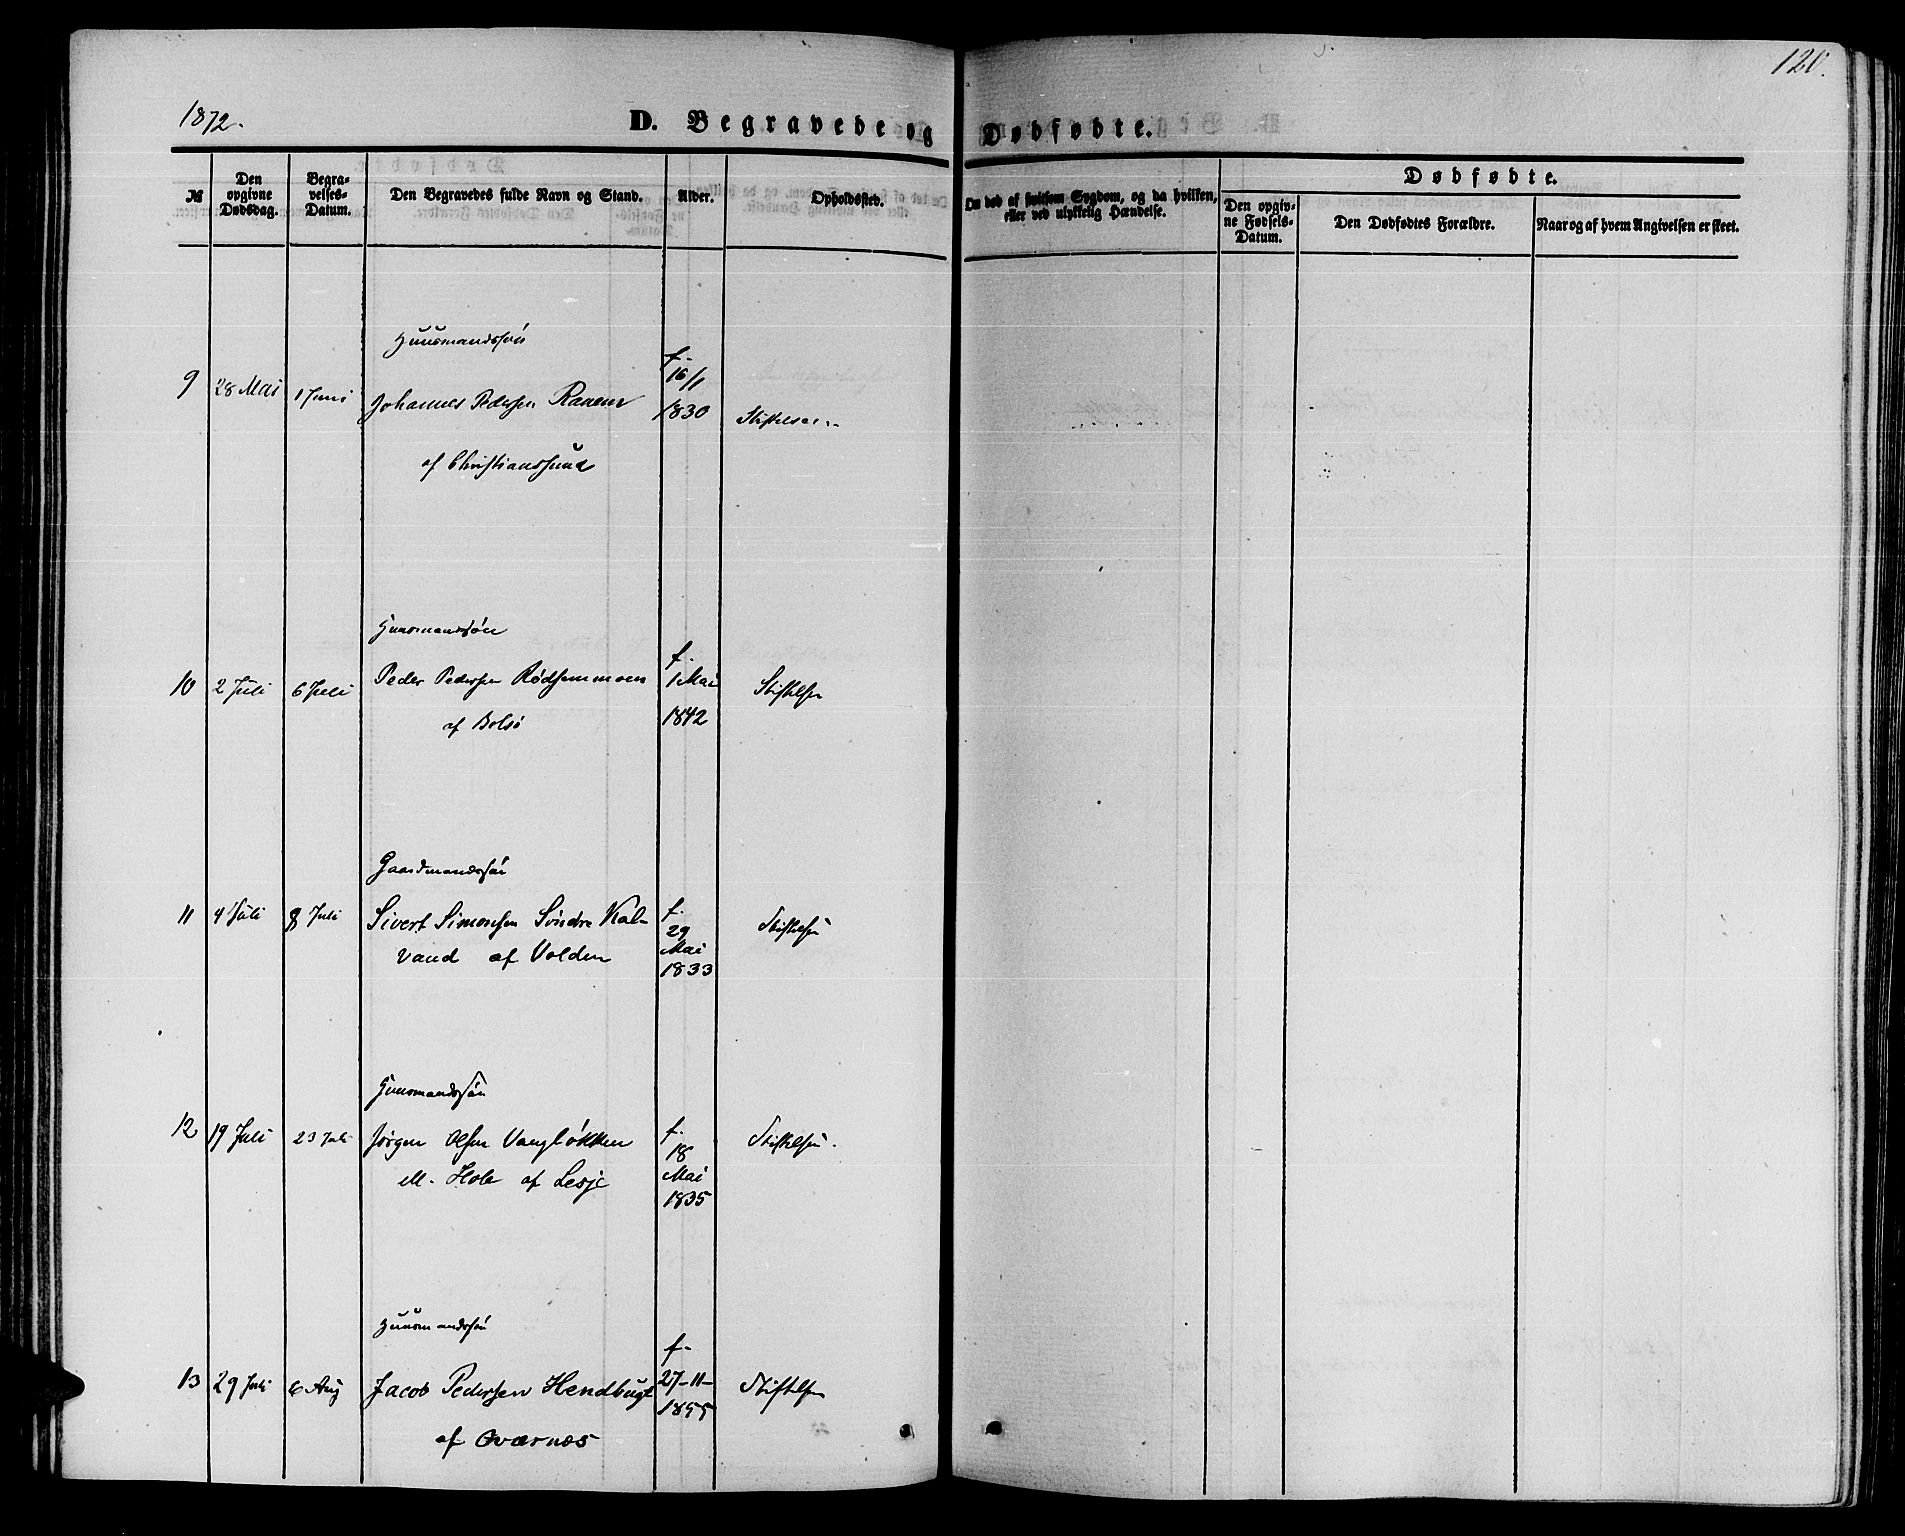 120.
1872.
D. Begravede og Dødfødte.
№
Den opgivne Dødsdag.
Begra-velses-Datum.
Den Begravedes fulde Navn og Stand.
Alder.
Opholdssted.
Om død af smitsom Sygdom, og da hvilken, eller ved ulykkelig Hændelse.
Dødfødte.
Den opgivne Fødsels-Datum.
Den Dødfødtes Forældre.
Naar og af hvem Angivelsen er skeet.
Huusmandssøn
9 28 Mai 1 Juni Johannes Pedersen f. 16/1 1830 Stiftelsen
af Christianssund
Huusmandssøn
10 2 Juli 6 Juli Peder Pedersen Rødsemmoen f. 1 Mai 1842 Stiftelsen
af Bolsø
Gaardmandssøn
11 4 Juli 8 Juli Sivert Simonsen Søndre Kal- f. 29 Mai 1833 Stiftelsen
vand af Volden
Huusmandssøn
12 19 Juli 23 Juli Jørgen Olsen Vangløkken f. 18 Mai 1835 Stiftelsen.
M. Hole af Lesje
Huusmandssøn
13 29 Juli 6 Aug Jacob Pedersen Hendbugt f. 27-11-1855 Stiftelsen
af Qværnæs